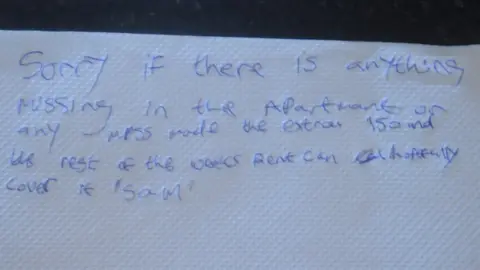 Sorry if there is anything
missing in the Apartment or
any mess made the extra 150 and
the rest of the weeks Rent can hopefully
cover it 'Sam'